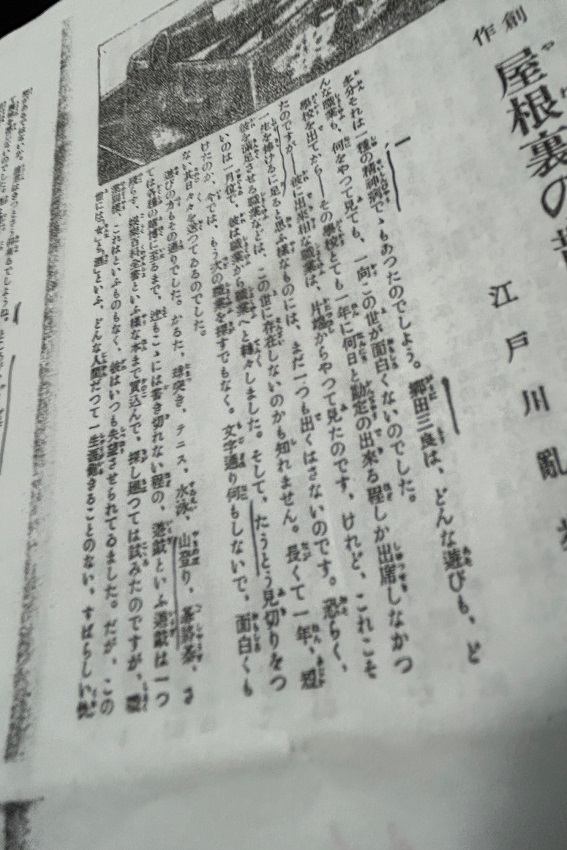 創作
屋根裏の
江戸川亂
一
多分それは一種の精神病でゝもあつたのでしよう。郷田三良は、どんな遊びも、ど
んな職業も、何をやつて見ても、一向この世が面白くないのでした。
學校を出てから――その學校とても一年に何日と勘定の出來る程しか出席しなかつ
たのですが――彼に出來相な職業は、片端からやつて見たのです、けれど、これこそ
一生を捧げるに足ると思ふ樣なものには、まだ一つも出くはさないのです。恐らく、
彼を滿足させる職業などは、この世に存在しないのかも知れません。長くて一年、短
いのは一月位で、彼は職業から職業へと轉々しました。そして、たうとう見切りをつ
けたのか、今では、もう次の職業を探すでもなく、文字通り何もしないで、面白くも
ない其日々々を送つてゐるのでした。
遊びの方もその通りでした。かるた、球突き、テニス、水泳、山登り、碁、將棊、さ
ては各種の賭博に至るまで、迚もこゝには書き切れない程の、遊戲といふ遊戲は一つ
殘らず、娯樂百科全書といふ樣な本まで買込んで、探し廻つては試みたのですが、職
業同樣、これはといふものもなく、彼はいつも失望させられてゐました。だが、この
世には「女」と「酒」といふ、どんな人間だつて一生涯飽きることのない、すばらしい快